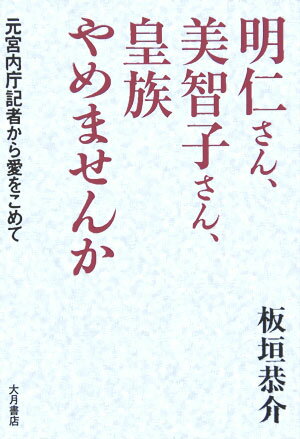 明仁さん、
美智子さん、
皇族
やめませんか
元宮内庁記者から愛をこめて
板垣恭介
大月書店